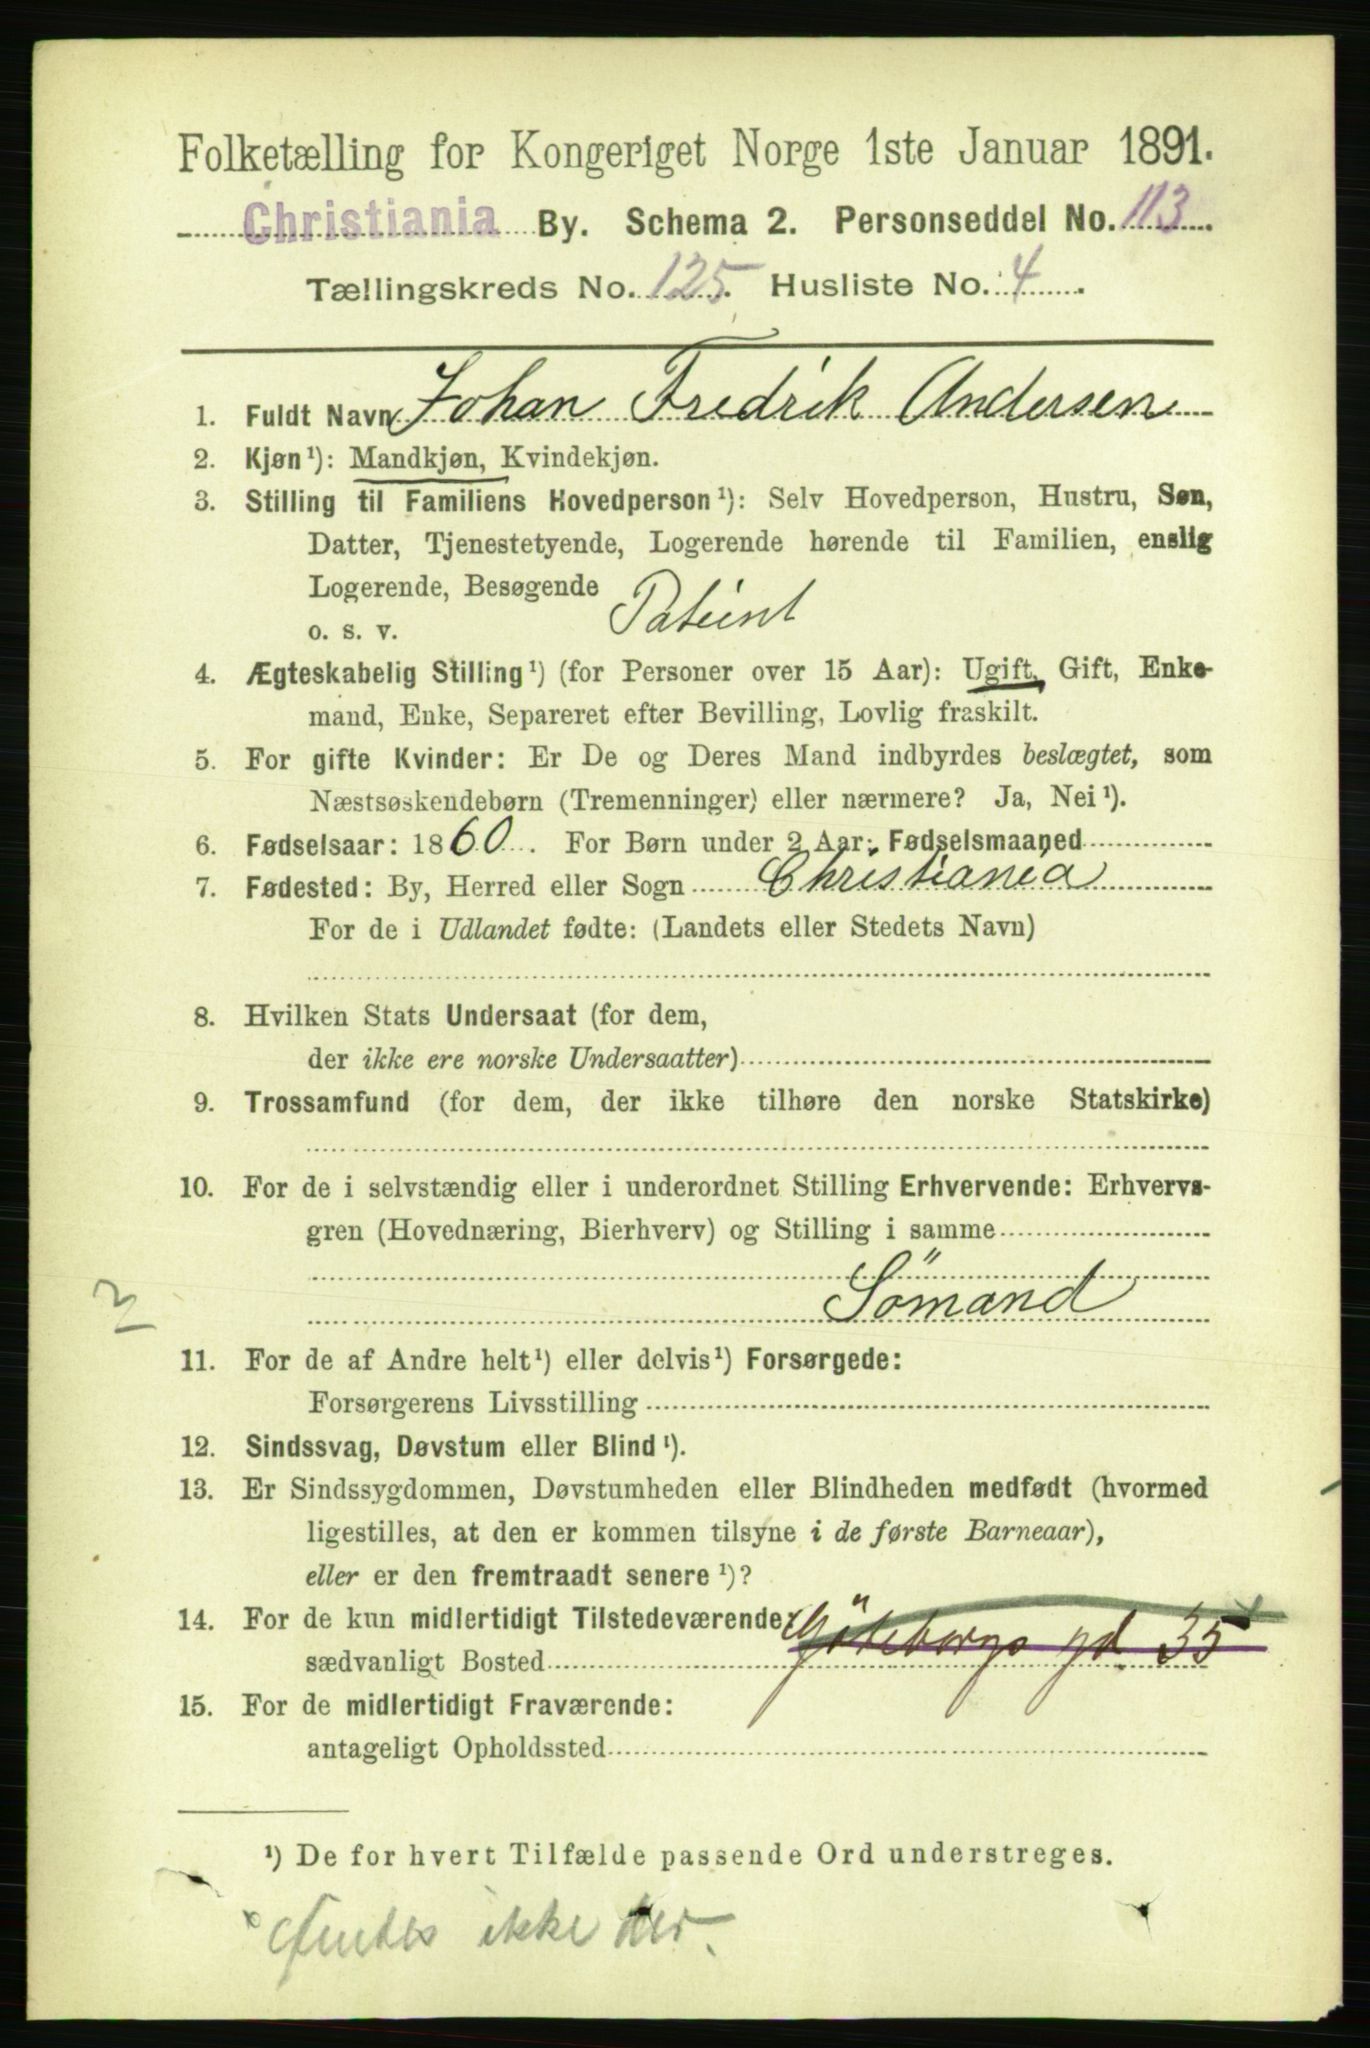 Folketælling for Kongeriget Norge 1ste Januar 1891.
Christiania By. Schema 2. Personseddel No. 113.
Tællingskreds No. 125. Husliste No. 4.
1. Fuldt Navn Johan Fredrik Andersen
2. Kjøn¹): Mandkjøn, Kvindekjøn.
3. Stilling til Familiens Hovedperson¹): Selv Hovedperson, Hustru, Søn,
Datter, Tjenestetyende, Logerende hørende til Familien, enslig
Logerende, Besøgende
o. s. v. Patient
4. Ægteskabelig Stilling¹) (for Personer over 15 Aar): Ugift, Gift, Enke-
mand, Enke, Separeret efter Bevilling, Lovlig fraskilt.
5. For gifte Kvinder: Er De og Deres Mand indbyrdes beslægtet, som
Næstsøskendebørn (Tremenninger) eller nærmere? Ja, Nei¹).
6. Fødselsaar: 1860. For Børn under 2 Aar: Fødselsmaaned
7. Fødested: By, Herred eller Sogn Christiania
For de i Udlandet fødte: (Landets eller Stedets Navn)
8. Hvilken Stats Undersaat (for dem,
der ikke ere norske Undersaatter)
9. Trossamfund (for dem, der ikke tilhøre den norske Statskirke)
10. For de i selvstændig eller i underordnet Stilling Erhvervende: Erhvervs-
gren (Hovednæring, Bierhverv) og Stilling i samme
Sömand
3
11. For de af Andre helt¹) eller delvis¹) Forsørgede:
Forsørgerens Livsstilling
12. Sindssvag, Døvstum eller Blind¹).
13. Er Sindssygdommen, Døvstumheden eller Blindheden medfødt (hvormed
ligestilles, at den er kommen tilsyne i de første Barneaar),
eller er den fremtraadt senere¹)?
14. For de kun midlertidigt Tilstedeværende: x
sædvanligt Bosted Göteborgs gd. 35
15. For de midlertidigt Fraværende:
antageligt Opholdssted
¹) De for hvert Tilfælde passende Ord understreges.
x Findes ikke der.